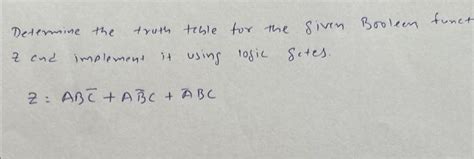 Determine the truth table for the given Boolean funct
Z and implement it using logic gates.
Z = ABC̅ + AB̅C + A̅BC